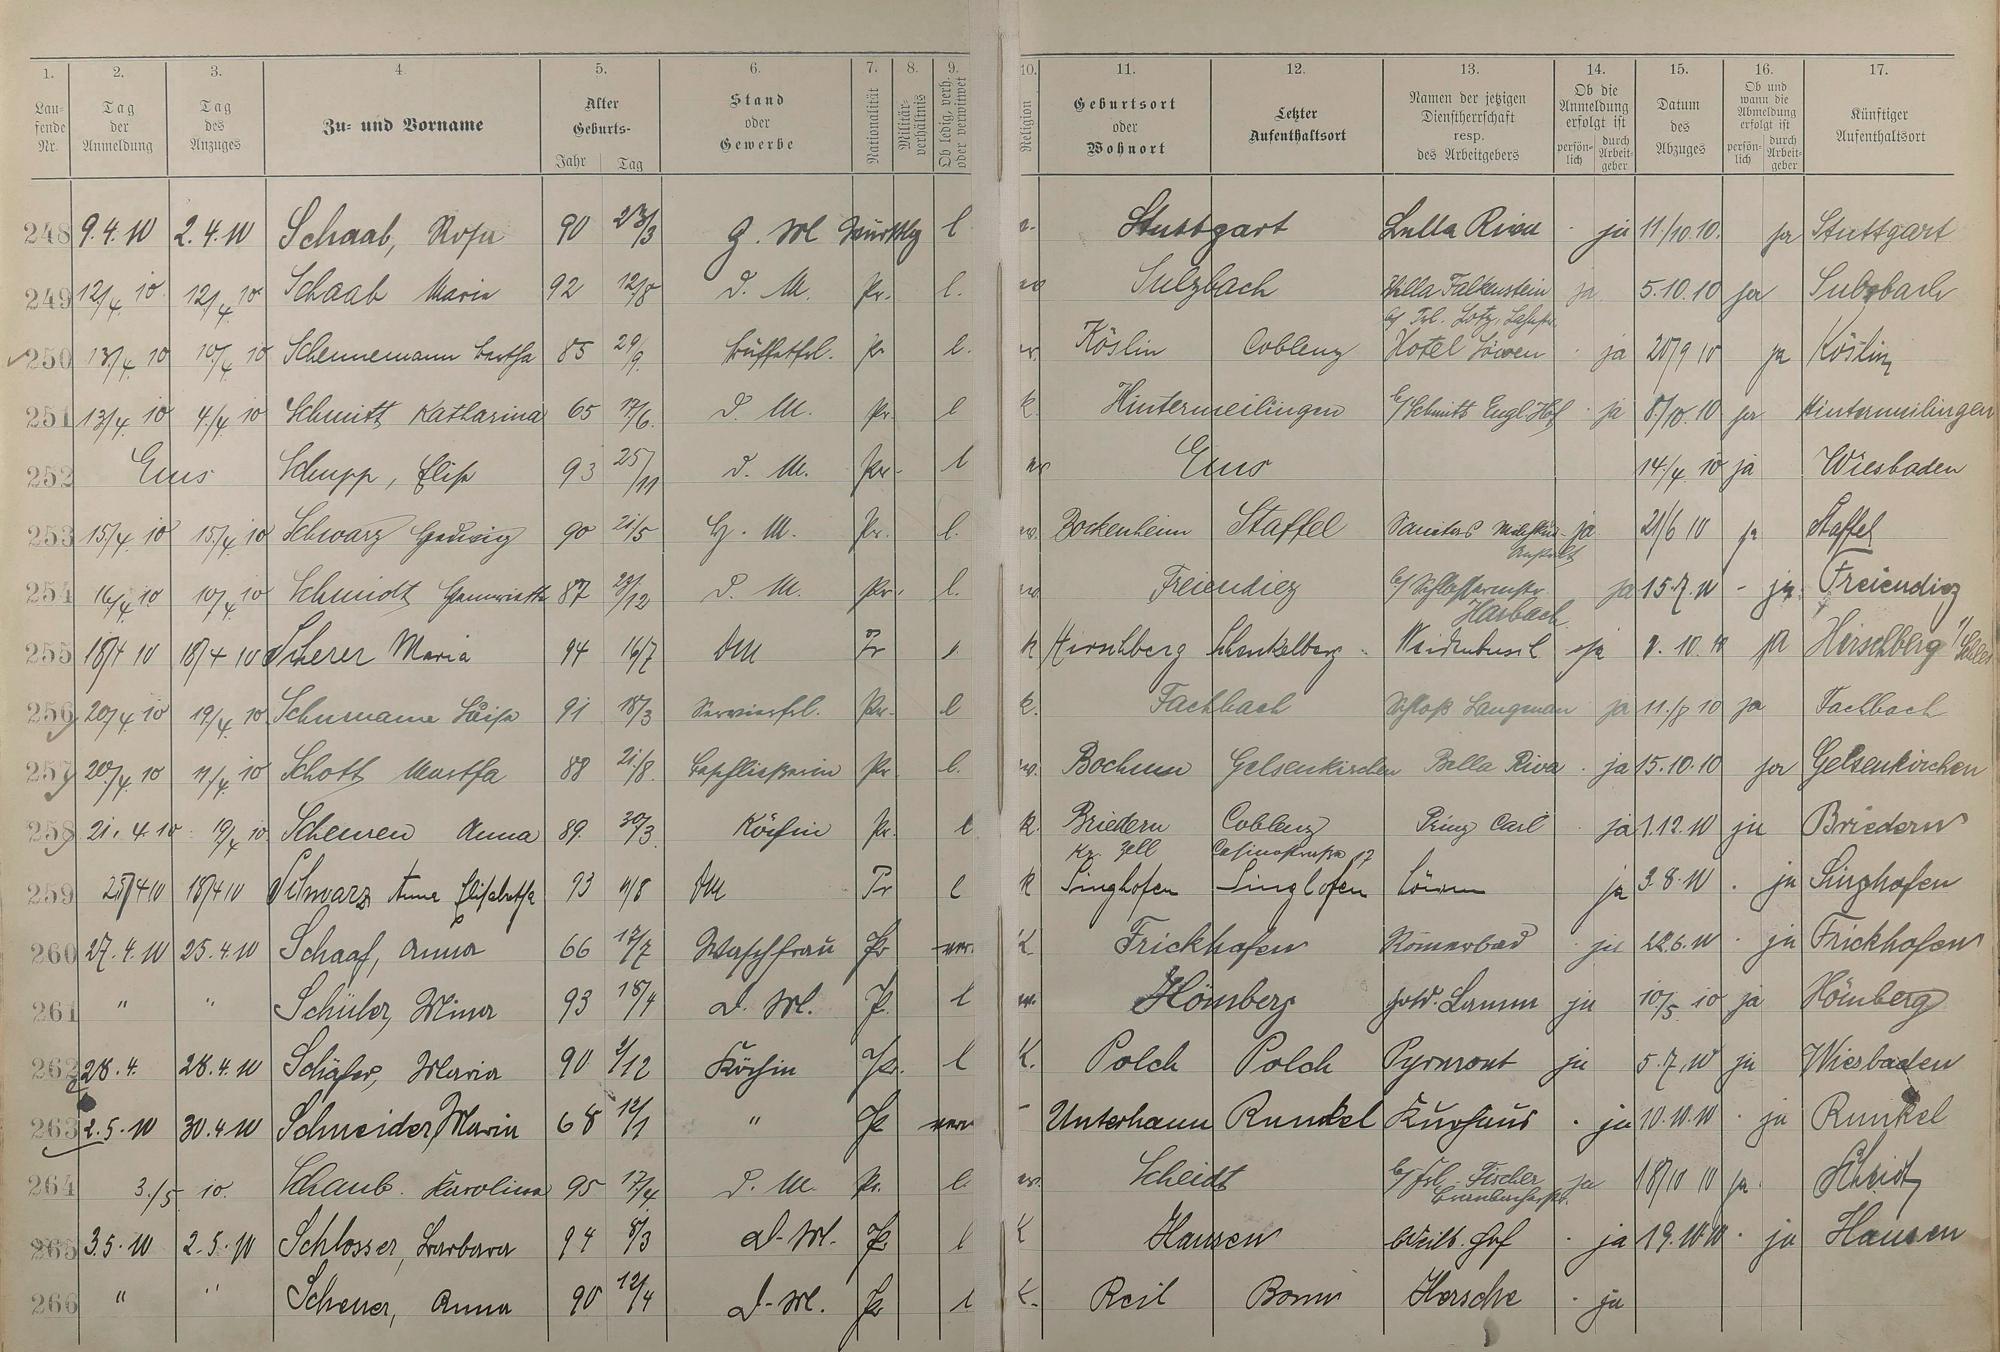 1. 2. 3. 4. 5. 6. 7. 8. 9. 10. 11. 12. 13. 14. 15. 16. 17.
Laufende Nr. | Tag der Anmeldung | Tag des Anzuges | Zu- und Vorname | Alter Geburts- Jahr Tag | Stand oder Gewerbe | Nationalität | Militärverhältnis | Ob ledig, verh. oder verwitwet | Religion | Geburtsort oder Wohnort | Letzter Aufenthaltsort | Namen der jetzigen Dienstherrschaft resp. des Arbeitgebers | Ob die Anmeldung erfolgt ist persönlich durch Arbeitgeber | Datum des Abzuges | Ob und wann die Abmeldung erfolgt ist persönlich durch Arbeitgeber | Künftiger Aufenthaltsort
248 9.4.10 2.4.10 Schaab, Rosa 90 23/3 l Stuttgart Riva ja 11/10.10. ja Stuttgart
249 12/4 10 12/4 10 Schaab Maria 92 12/8 D. M. Pr. l. Sulzbach Villa Falkenstein ja 5.10.10 ja Sulzbach
b/ Frl. Lotz,
250 13/4 10 10/4 10 Schennemann Bertha 85 29/9. Büffetfrl. Pr l. Köslin Coblenz Hotel Löwen ja 20/9 10 ja Köslin
251 13/4 10 4/4 10 Schmitt Katharina 65 17/6. D. M. Pr. l k. Hintermeilingen b/ Schmitt Engl. Hof ja 8/10.10 ja Hintermeilingen
252 Ems Schupp, Elise 93 25/11 D. M. Pr. l Ems 14/4 10 ja Wiesbaden
253 15/4 10 15/4 10 Schwarz Hedwig 90 21/5 M. Pr. l. Bockenheim Staffel ja 21/6 10 ja Staffel
254 16/4 10 10/4 10 Schmidt Henriette 87 29/12 D. M. Pr. l. Freiendiez b/ Schlossermstr. Harbach ja 15.7.10 - ja Freiendiez
255 18/4 10 18/4 10 Scherer Maria 94 16/7 DM Pr k Hirschberg Schenkelberg Weidenbusch ja 10.10 ja Hirschberg
256 20/4 10 19/4 10 91 18/3 Servierfrl. Pr. l k. Fachbach Schloß Langenau ja 11./8 10 ja Fachbach
257 20/4 10 11/4 10 Schott Martha 88 21./8. Beschließerin Pr l. Bochum Gelsenkirchen Bella Riva ja 15.10.10 ja Gelsenkirchen
258 21.4.10 19/4 10 Scheuren Anna 89. 30/3. Köchin Pr. l k. Briedern Coblenz Prinz Carl ja 1.12.10 ja Briedern
Kr. Zell Casinostraße 17
259 18/4 10 Schwarz Anna Elisabetha 93 11/8 DM Pr l k Singhofen Singhofen Löwen ja 3.8.10 ja Singhofen
260 27.4.10 25.4.10 Schaaf, Anna 66 17/7 Waschfrau Pr ver. K Frickhofen Römerbad ja 22.6.10 ja Frickhofen
261 " " Schüler, Mina 93 18/4 D. M. P. l Hömberg Gold. Lamm ja 10/5. 10 ja Hömberg
262 28.4. 28.4.10 Schäfer, Maria 90 Köchin Pr. l K. Polch Polch Pyrmont ja 5.7.10 ja Wiesbaden
263 2.5.10 30.4.10 Schneider, Maria 68 12/1 " Pr ver - Runkel Kurhaus ja 10.10.10 ja Runkel
264 3./5 10. Schaub. Karolina 95 17/4 D. M. Pr. l. Scheidt b/ Frl. Fischer ja 18/10 10 ja Scheidt
265 3.5.10 2.5.10 Schlosser, Barbara 94 8/3 D. M. Pr l K Hausen Weilb. Hof ja 19.10.10 ja Hausen
266 " " Scheuer, Anna 90 12/4 D. M. Pr l K. Reil Bonn ja